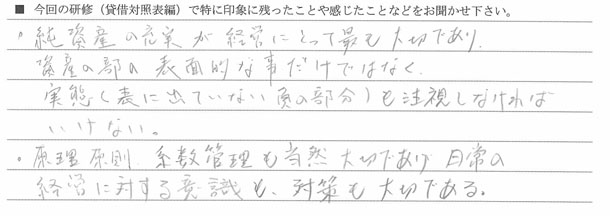 ■ 今回の研修（貸借対照表編）で特に印象に残ったことや感じたことなどをお聞かせ下さい。
・純資産の充実が経営にとって最も大切であり、
資産の部の表面的な事だけではなく、
実態（表に出ていない真の部分）も注視しなければ
いけない。
・原理原則 系数管理も当然大切であり日常の
経営に対する意識も、対策も大切である。